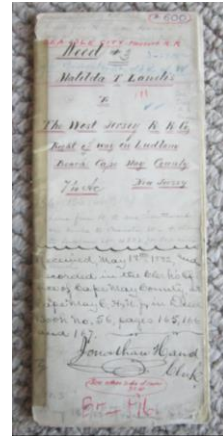 2500
SEA ISLE CITY
Deed #3
Matilda T Landis
To
The West Jersey R R Co
Right of way on Ludlam
Beach Cape May County
New Jersey
Received May 18th 1882 and
recorded in the Clerk's
of Cape May County, at
Cape May C.H. N.J. in Deed
Book no. 56, pages 165, 166
and 167.
Jonathan Hand
Clerk